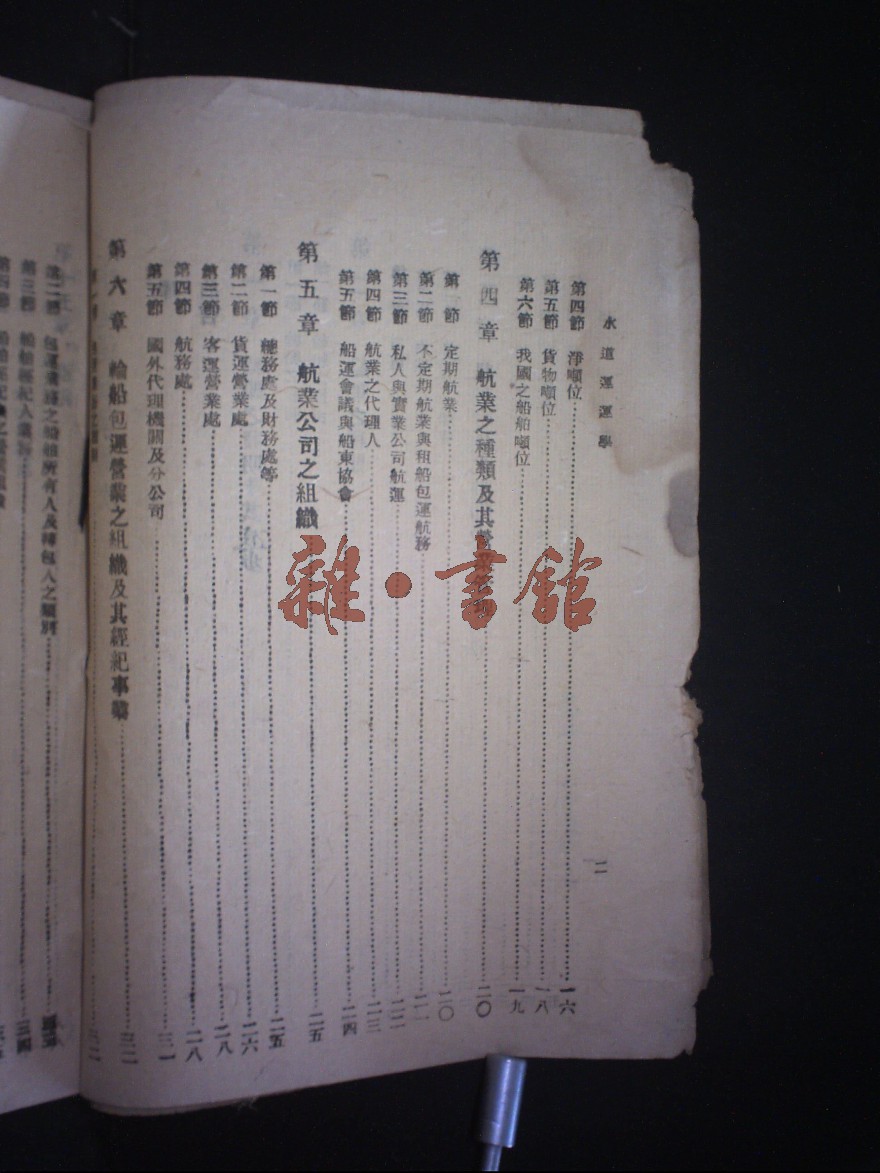 水道運運學
二
第四節 淨噸位 一六
第五節 貨物噸位 一八
第六節 我國之船舶噸位 一九
第四章 航業之種類及其營業 二〇
第一節 定期航業 二〇
第二節 不定期航業與租船包運航務 二一
第三節 私人與實業公司航運 二二
第四節 航業之代理人 二三
第五節 船運會議與船東協會 二四
第五章 航業公司之組織 二五
第一節 總務處及財務處等 二五
第二節 貨運營業處 二六
第三節 客運營業處 二八
第四節 航務處 二八
第五節 國外代理機關及分公司 三一
第六章 輪船包運營業之組織及其經紀事業 三二
第二節 包運業務之船舶所有人及轉包人之類別
第三節 船舶經紀人 三四
第四節
雜·書館